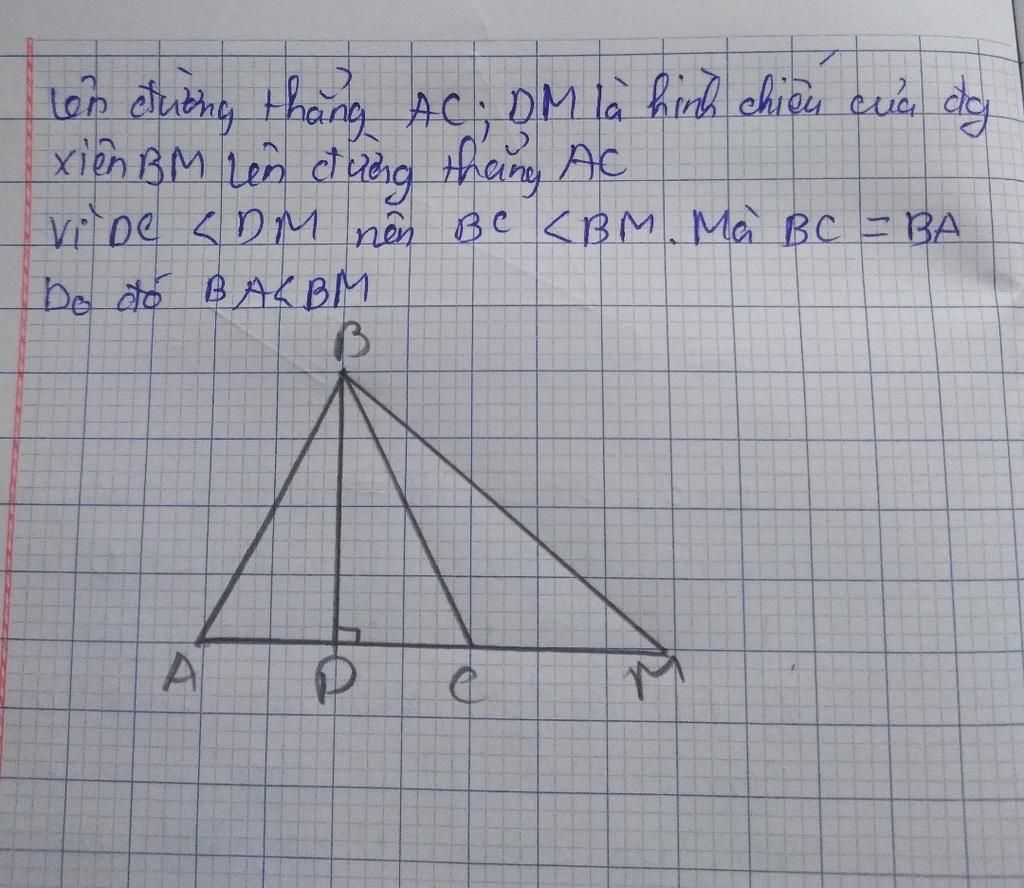 lên đường thẳng AC; DM là hình chiếu của đg
xiên BM lên đường thẳng AC
Vì DC < DM nên BC < BM. Mà BC = BA
Do đó BA < BM
B
A D C M